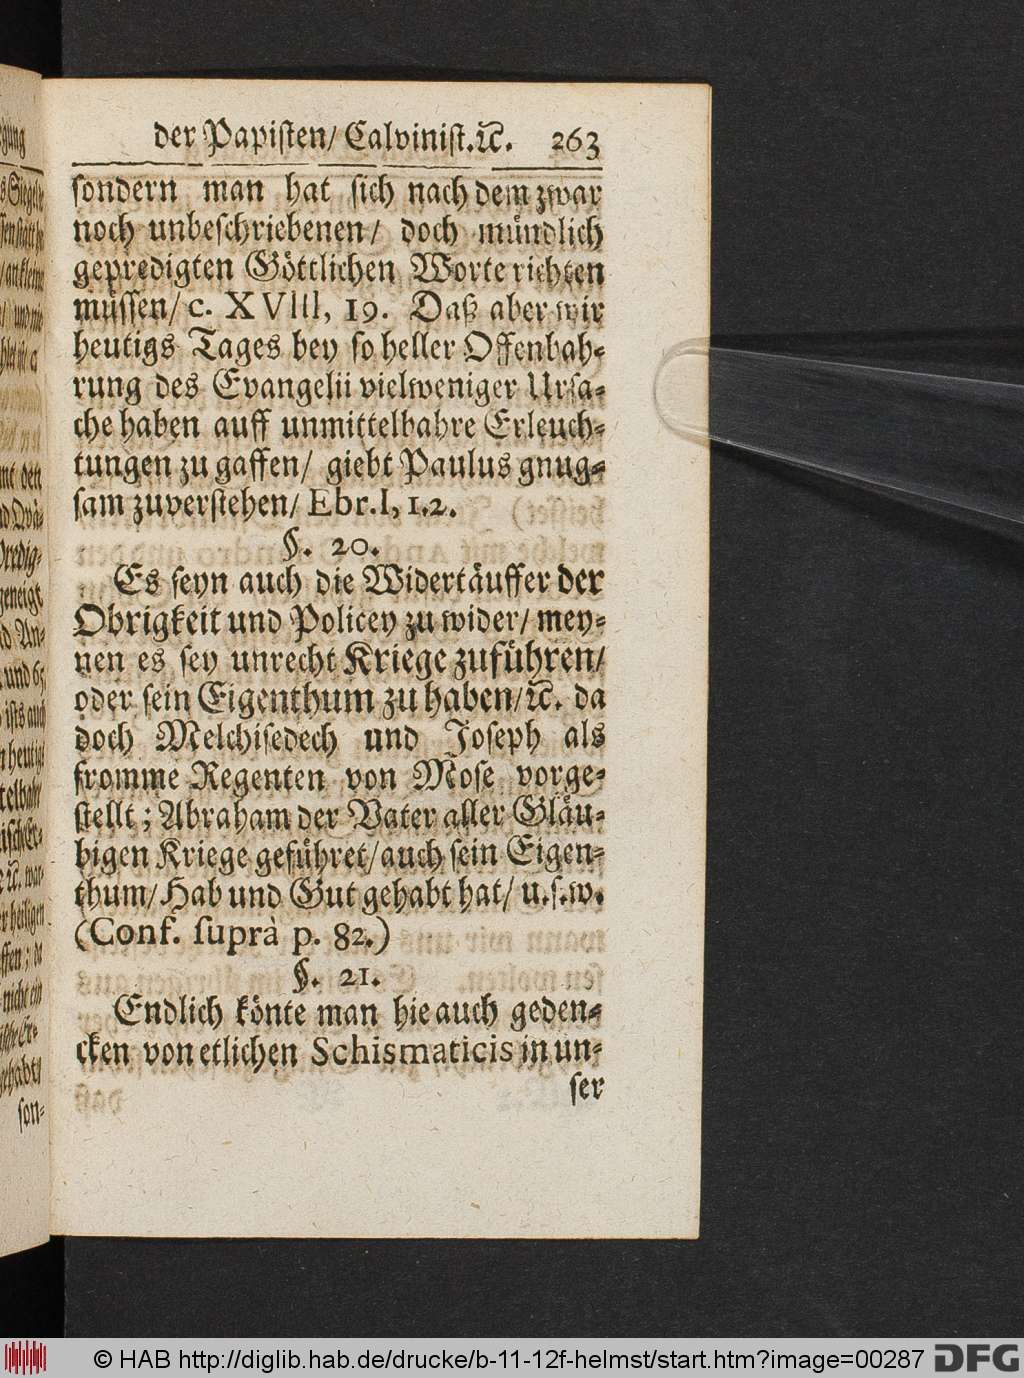 der Papisten/ Calvinist.ꝛc. 263
sondern man hat sich nach dem zwar
noch unbeschriebenen/ doch mündlich
gepredigten Göttlichen Worte richten
müssen/ c. XVIII, 19. Daß aber wir
heutigs Tages bey so heller Offenbah-
rung des Evangelii vielweniger Ursa-
che haben auff unmittelbahre Erleuch-
tungen zu gaffen/ giebt Paulus gnug-
sam zuverstehen/ Ebr. I, 1.2.
§. 20.
Es seyn auch die Widertäuffer der
Obrigkeit und Policey zu wider/ mey-
nen es sey unrecht Kriege zuführen/
oder sein Eigenthum zu haben/ꝛc. da
doch Melchisedech und Joseph als
fromme Regenten von Mose vorge-
stellt; Abraham der Vater aller Gläu-
bigen Kriege geführet/ auch sein Eigen-
thum/ Hab und Gut gehabt hat/ u.s.w.
(Conf. suprà p. 82.)
§. 21.
Endlich könte man hie auch geden-
cken von etlichen Schismaticis in un-
ser
© HAB http://diglib.hab.de/drucke/b-11-12f-helmst/start.htm?image=00287
DFG